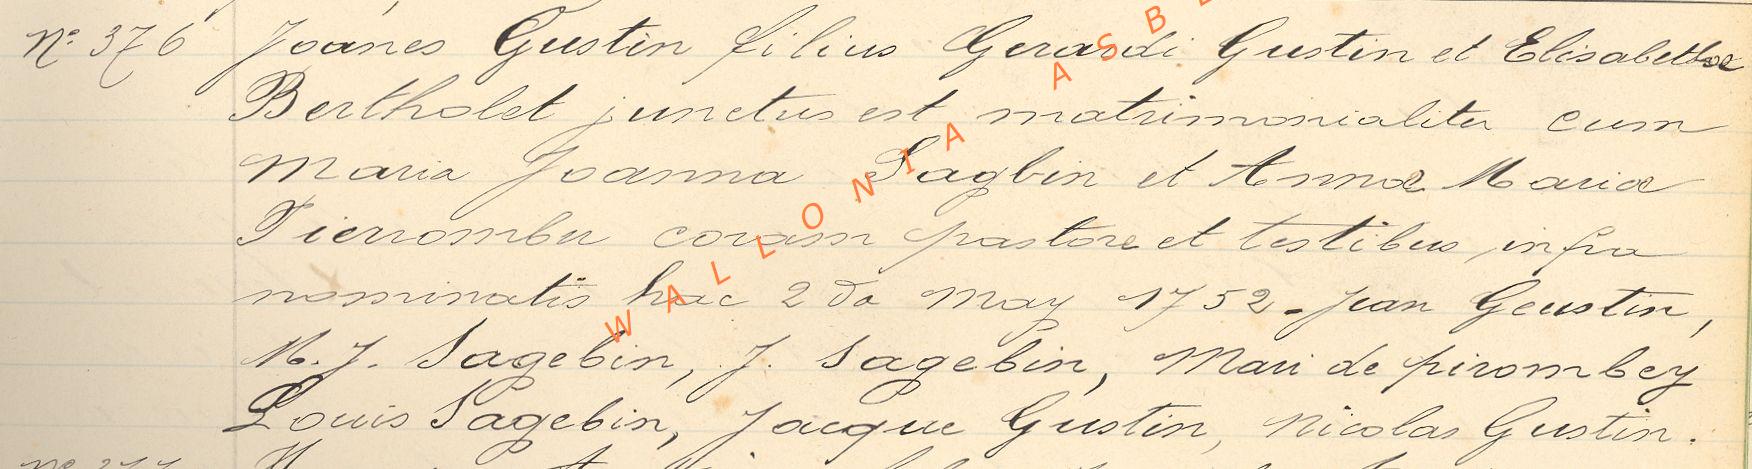 N° 376 Joanes Gustin filius Gerardi Gustin et Elisabethae
Bertholet junctus est matrimonialiter cum
Maria Joanna Sagbin et Anna Maria
Pierrombu coram pastore et testibus infra
nominatis hac 2da May 1752 - Jean Geustin,
M. J. Sagebin, J. Sagebin, Mari de pirombey
Louis Sagebin, Jacque Gustin, Nicolas Gustin.
WALLONIA ASB